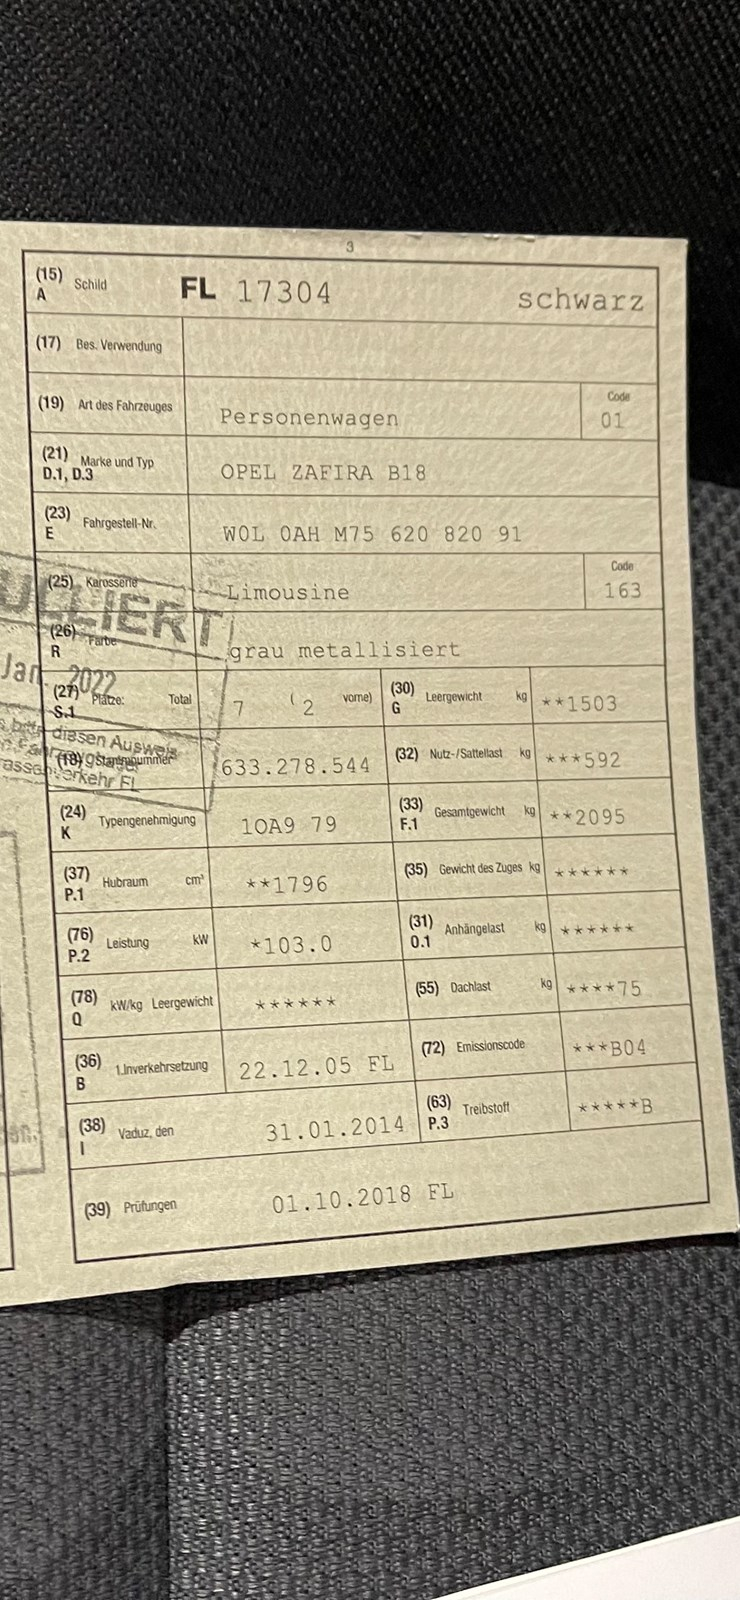 3
(15) A Schild FL 17304 schwarz
(17) Bes. Verwendung
(19) Art des Fahrzeuges Personenwagen Code 01
(21) D.1, D.3 Marke und Typ OPEL ZAFIRA B18
(23) E Fahrgestell-Nr. WOL OAH M75 620 820 91
(25) Karosserie Limousine Code 163
ULLIERT
(26) R Farbe grau metallisiert
Jan. 2022
(27) S.1 Plätze: Total 7 ( 2 vorne) (30) G Leergewicht kg **1503
diesen Ausweis
(18) Stammnummer 633.278.544 (32) Nutz-/Sattellast kg ***592
verkehr FL
(24) K Typengenehmigung 1OA9 79 (33) F.1 Gesamtgewicht kg **2095
(37) P.1 Hubraum cm³ **1796 (35) Gewicht des Zuges kg ******
(76) P.2 Leistung kW *103.0 (31) O.1 Anhängelast kg ******
(78) Q kW/kg Leergewicht ****** (55) Dachlast kg ****75
(36) B 1.Inverkehrsetzung 22.12.05 FL (72) Emissionscode ***B04
(38) I Vaduz, den 31.01.2014 (63) P.3 Treibstoff *****B
(39) Prüfungen 01.10.2018 FL